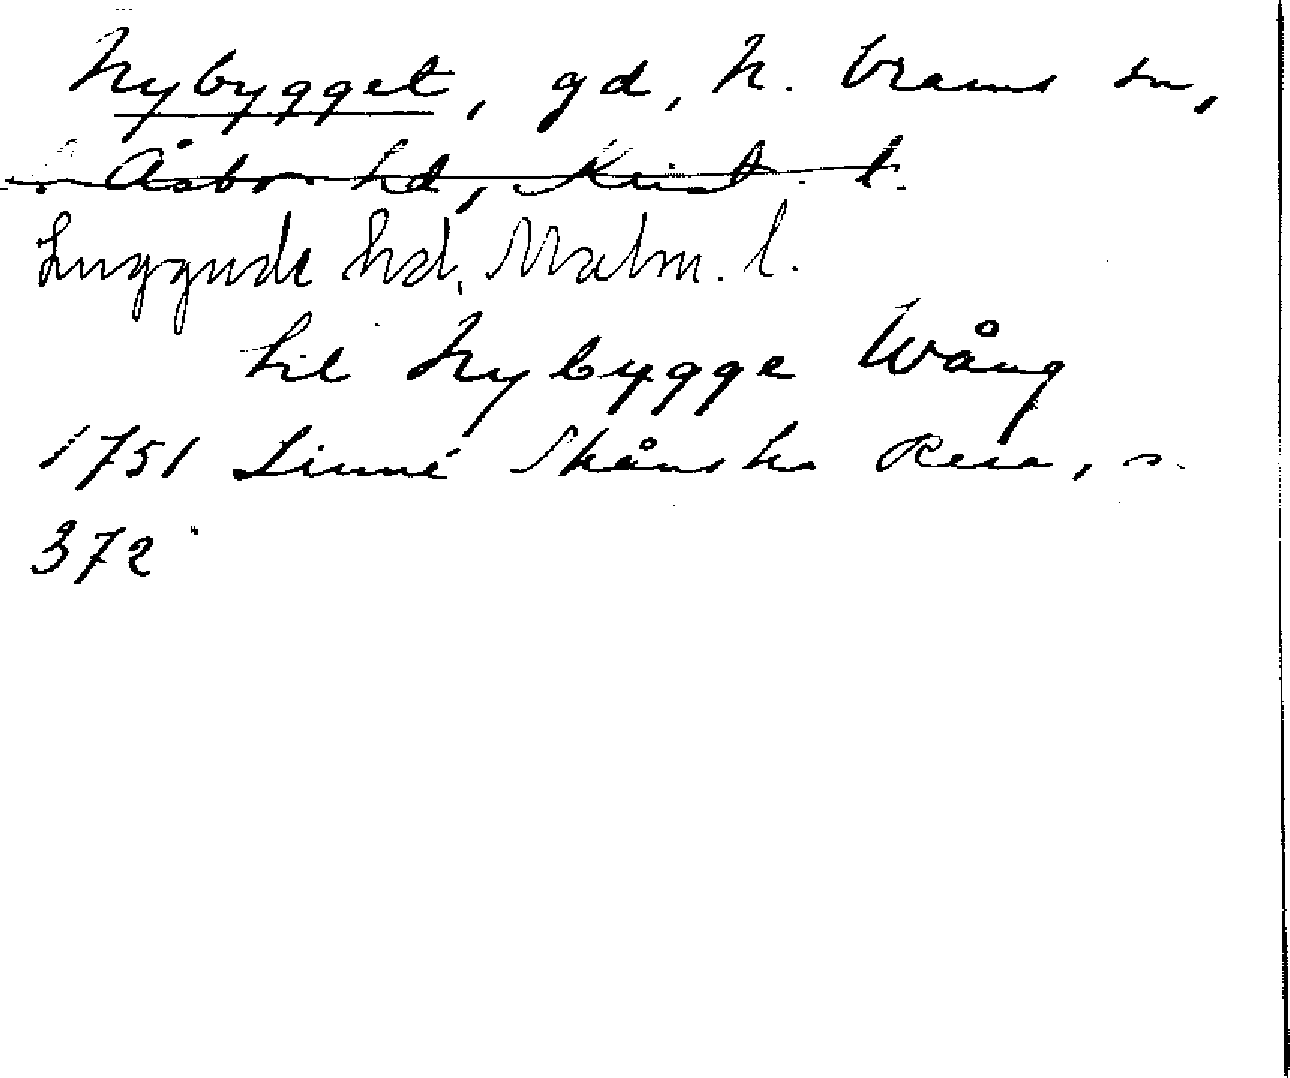 Nybygget, gd, N. Vrams sn,
. Åsbo hd, Krist. l.
Luggude hd, Malm. l.
til Nybygge Wång
1751 Linné Skånska Resa, s.
372